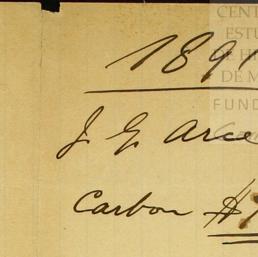 1891
J. G. Arce
Carbon #
CENT
ESTU
DE HI
DE M
FUND